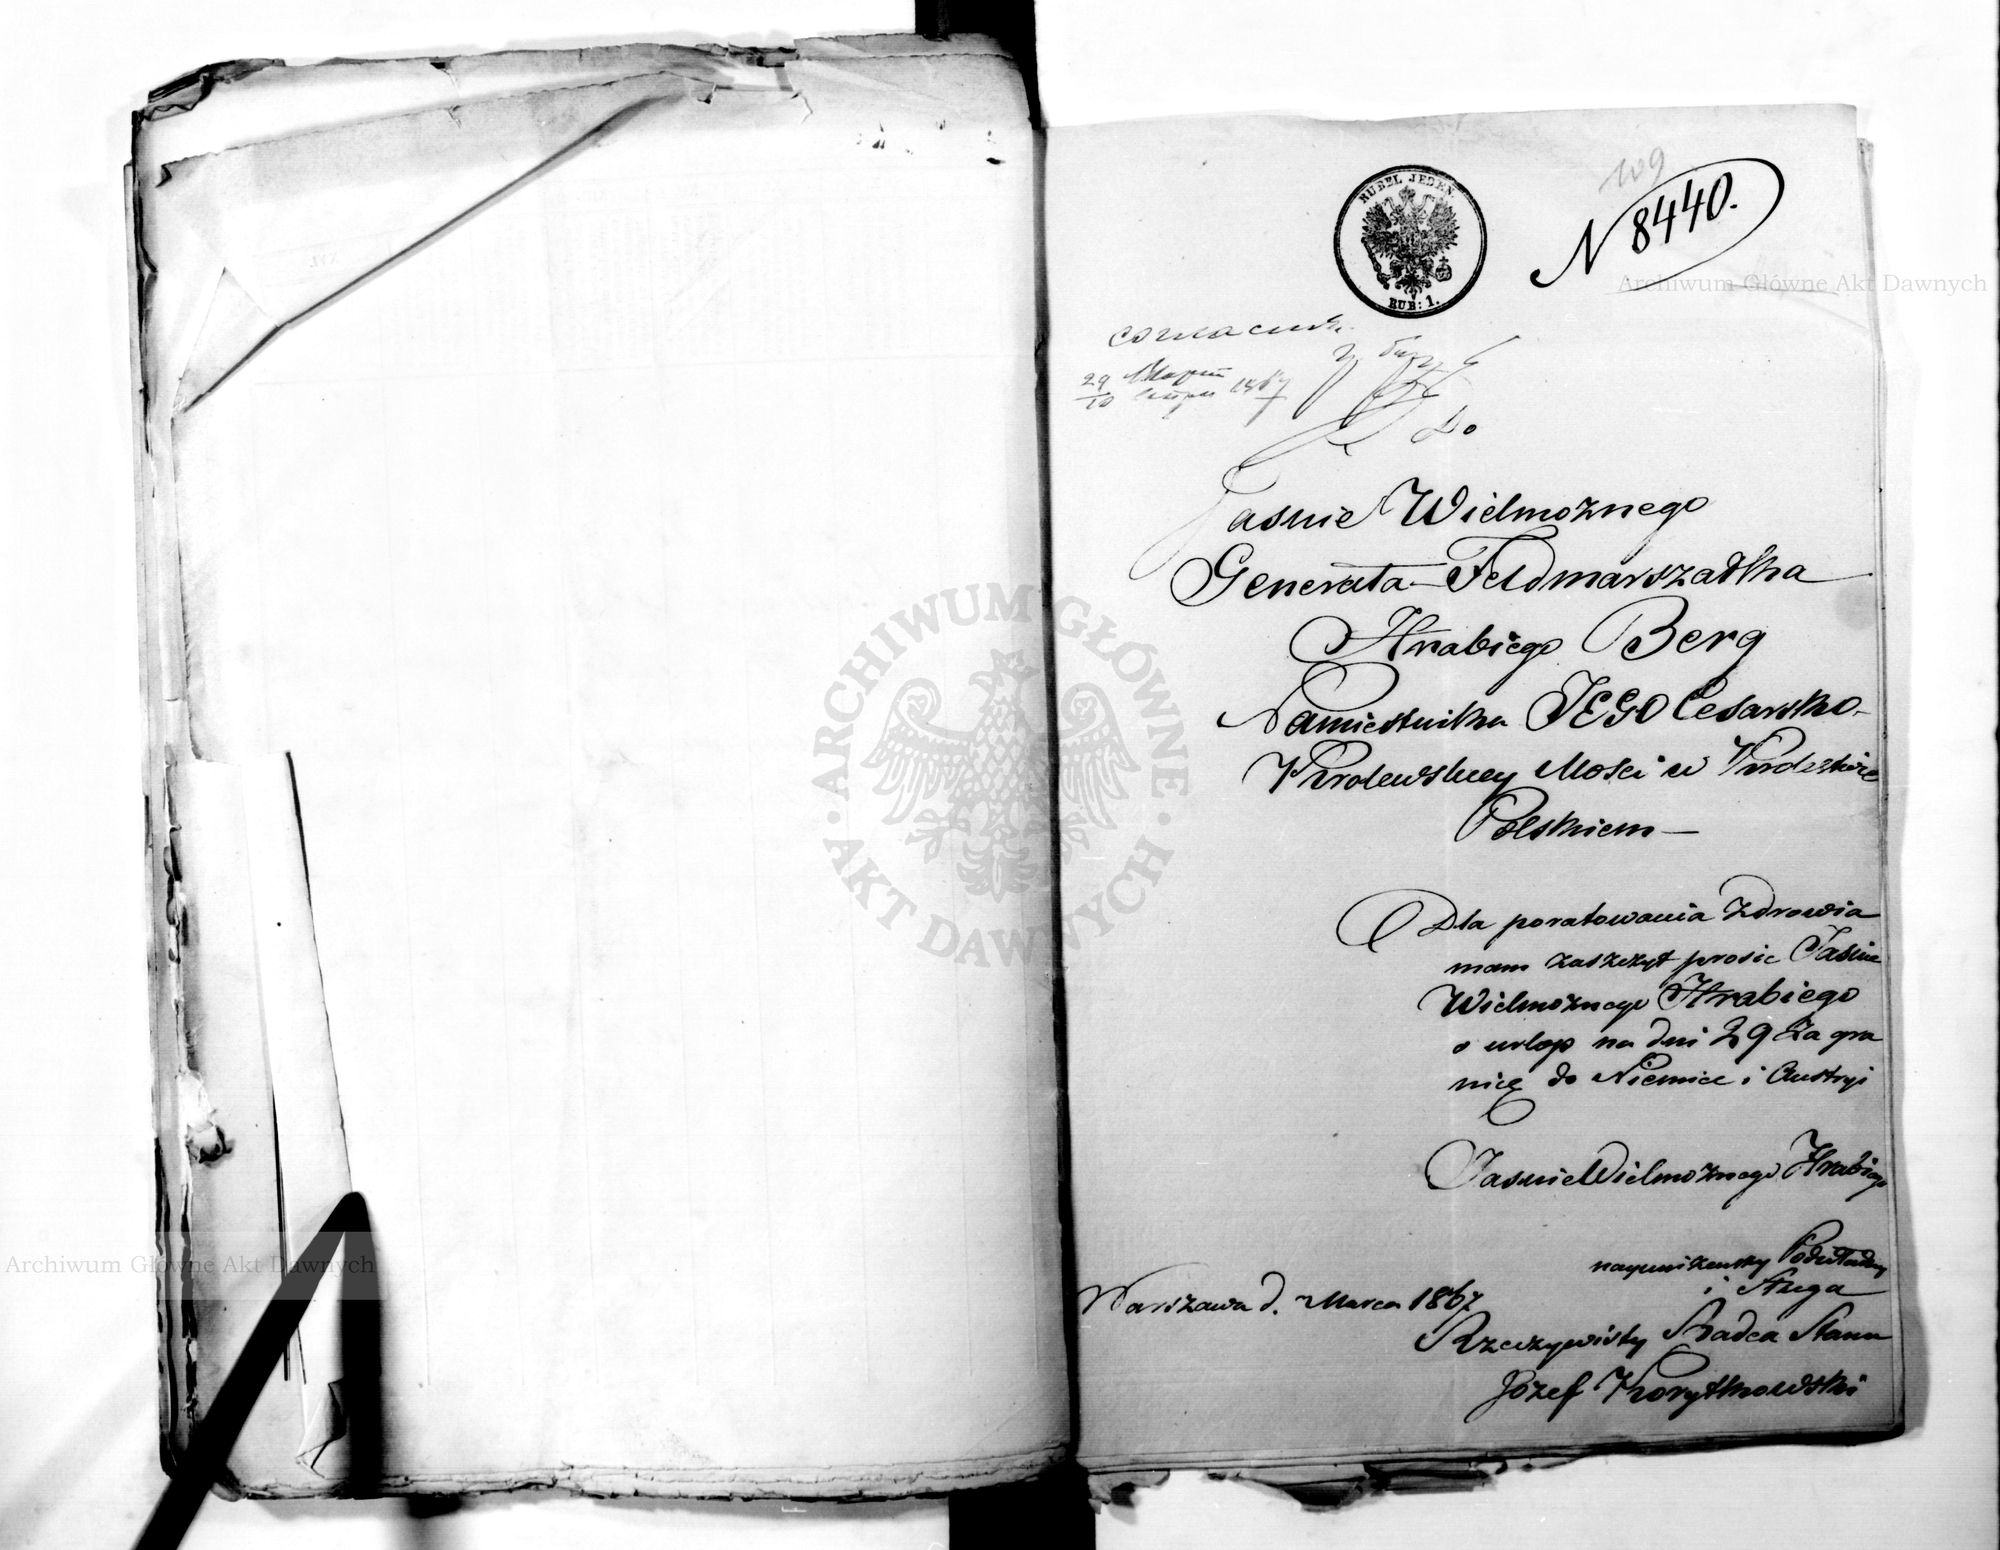 109
N 8440.
RUBEL JEDEN.
RUB: 1.
Archiwum Główne Akt Dawnych
согласенъ.
29 Марта
10 1867
Do
Jasnie Wielmożnego
Generała-Feldmarszałka
Hrabiego Berg
Namiestnika JEGO Cesarsko-
Krolewskiey Mości w Krolestwie
Polskiem—
Dla poratowania Zdrowia
mam zaszczyt prosic Jasnie
Wielmożnego Hrabiego
o urlop na dni 29 Za gra
nicę do Niemiec i Austryi
Jasnie Wielmożnego Hrabiego
nayunizenszy Podwładny
i Sługa
Warszawa d. Marca 1867
Rzeczywisty Radca Stanu
Józef Korytkowski
ARCHIWUM GŁÓWNE
AKT DAWNYCH
Archiwum Główne Akt Dawnych